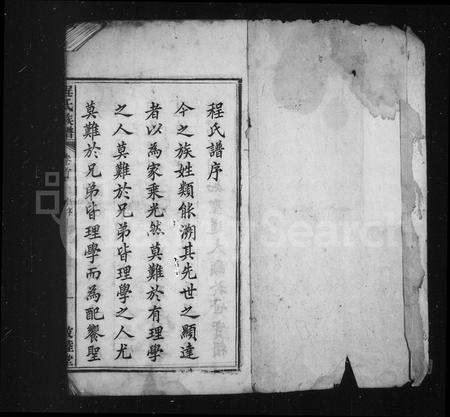 程氏譜序
今之族姓類能溯其先世之顯達
者以為家乘光然莫難於有理學
之人莫難於兄弟皆理學之人尤
莫難於兄弟皆理學而為配饗聖
程氏族譜
敦睦堂